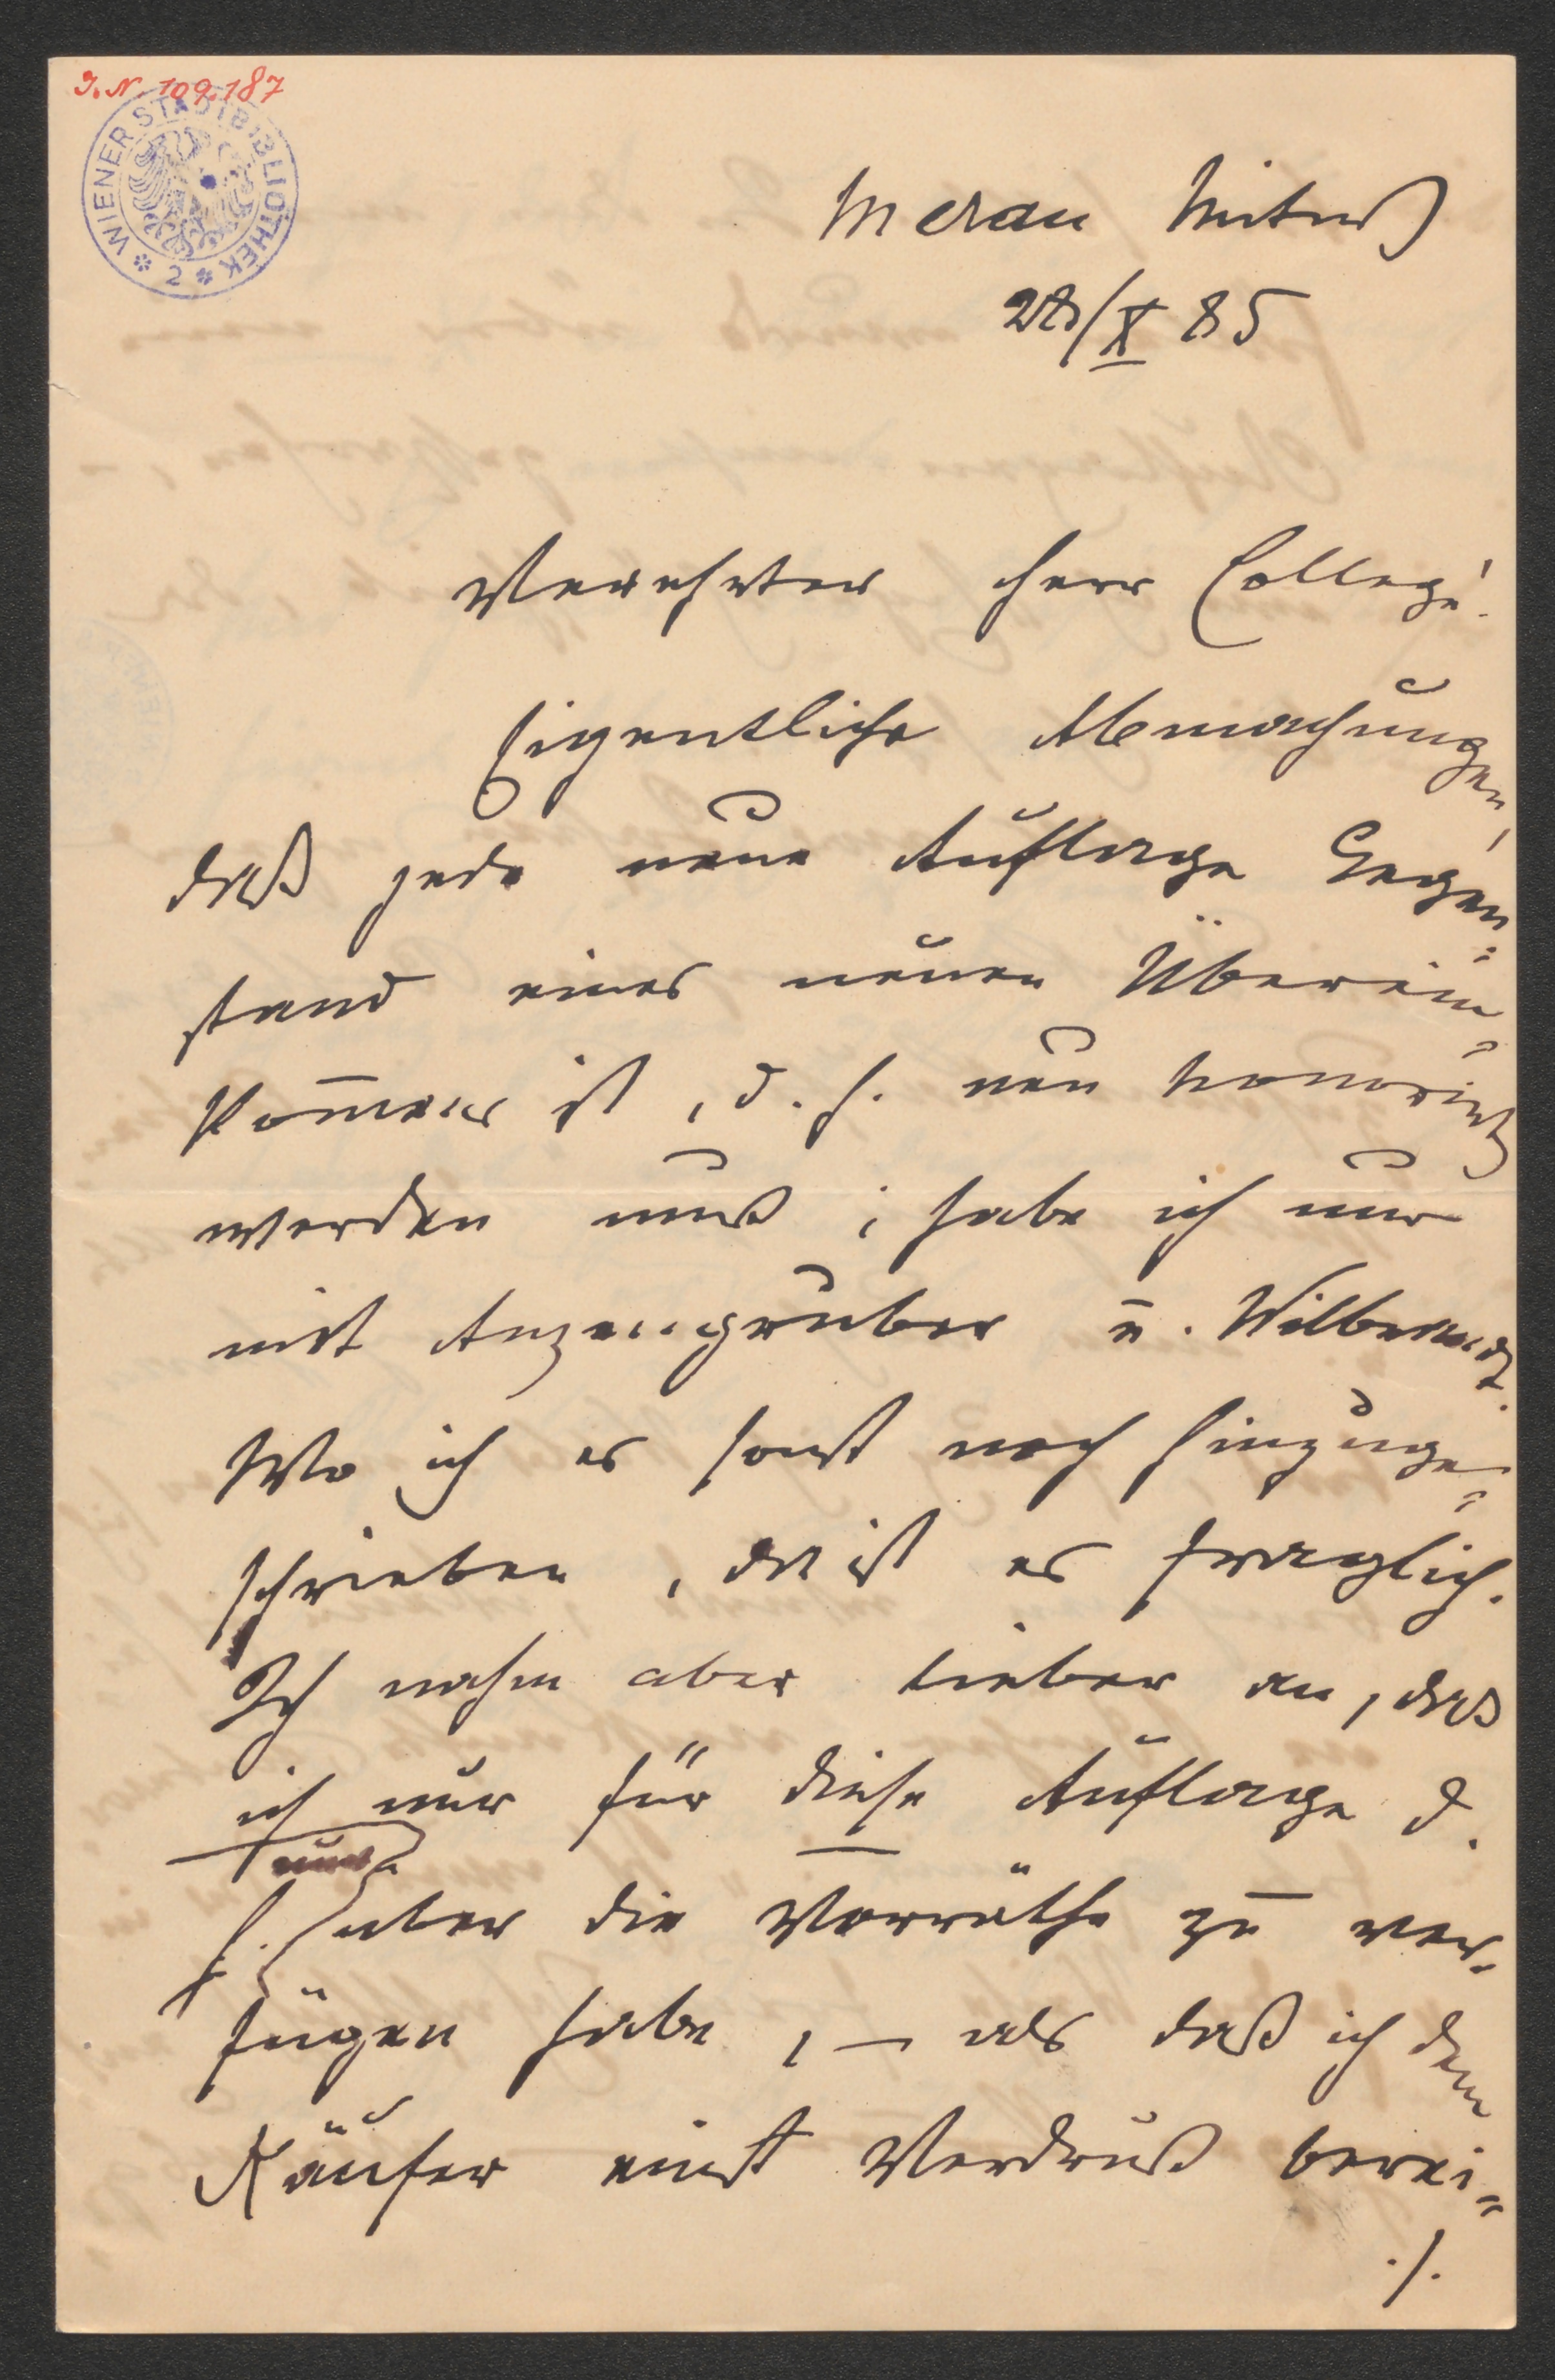 J. N. 109.187
WIENER STADTBIBLIOTHEK
2
Meran
28/X 85
Verehrter Herr College!
Eigentliche Abmachungen,
daß jede neue Auflage Gegen=
stand eines neuen Überein=
kom̄ens ist, d. h. neu honorirt
werden muß; habe ich nur
mit Anzengruber u. Wilbrandt.
Wo ich es sonst noch hinzuge=
schrieben, da ist es fraglich.
Ich nahm aber lieber an, daß
ich nur für diese Auflage d.
nur
h. über die Vorräthe zu ver-
fügen habe, – als daß ich dem
Käufer einst Verdruß berei=
./.